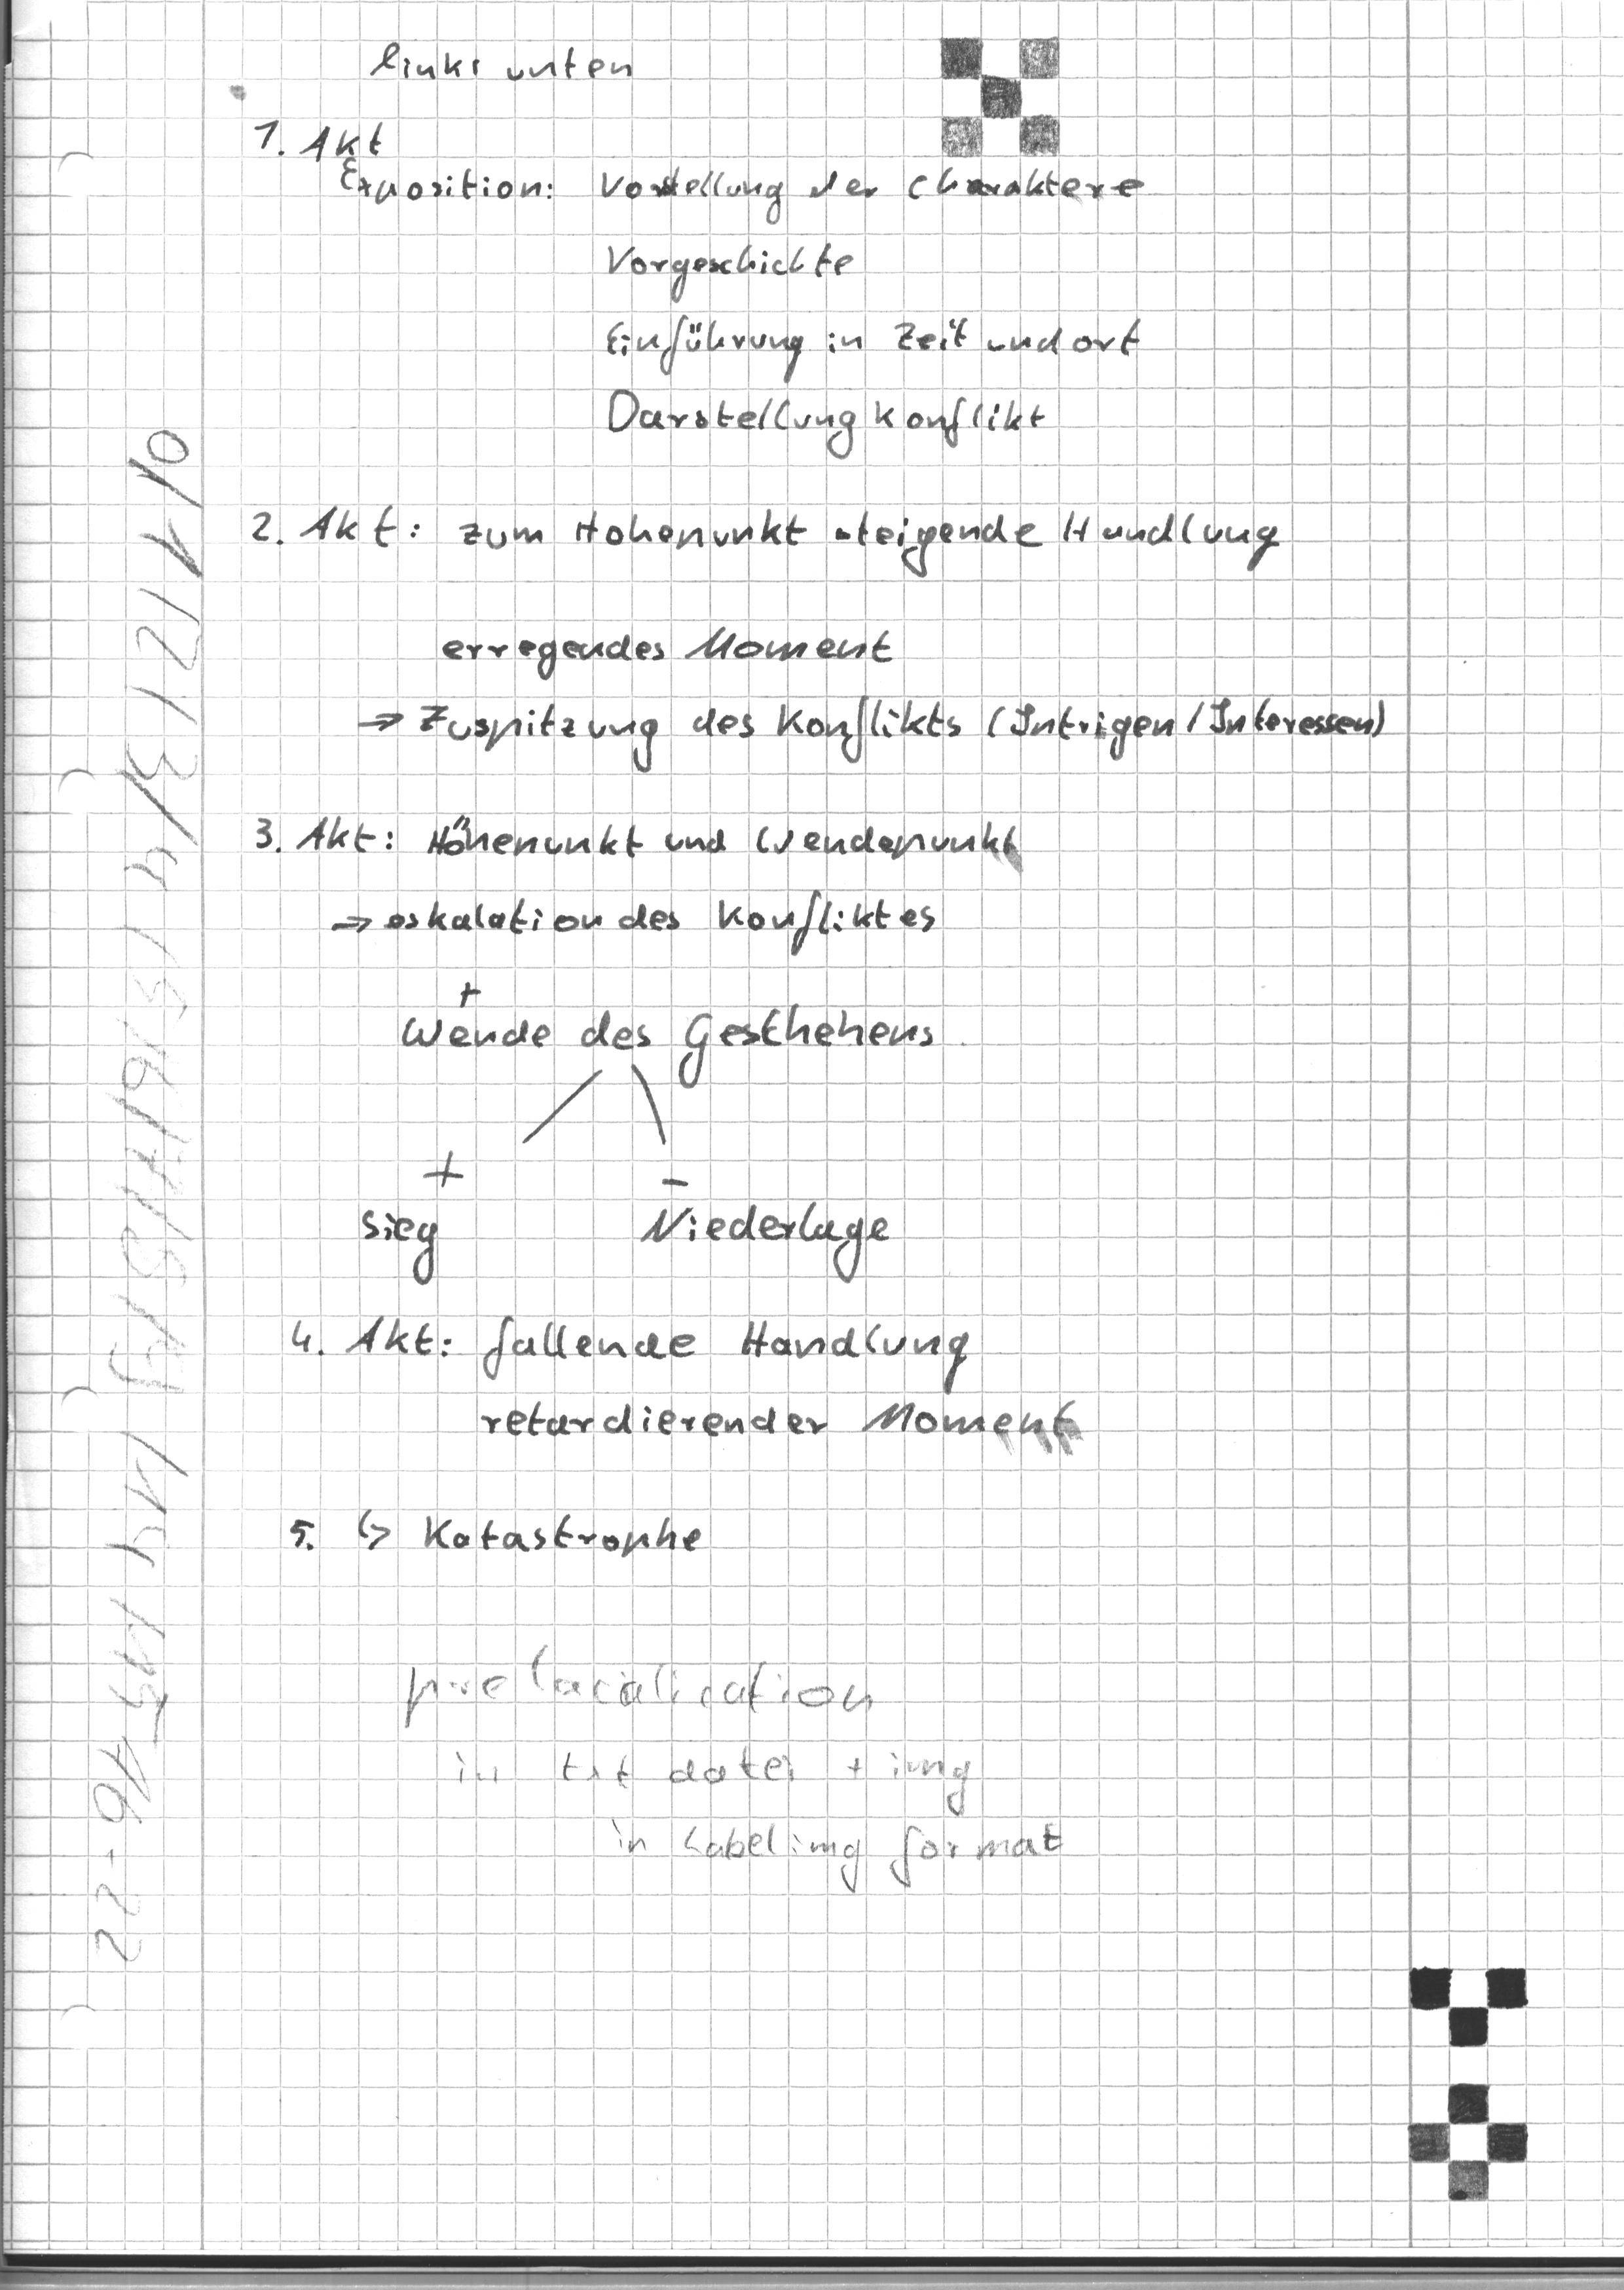 links unten
1. Akt
Exposition: Vorstellung der Charaktere
Vorgeschichte
Einführung in Zeit und ort
Darstellung Konflikt
2. Akt: zum Hohepunkt steigende Handlung
erregendes Moment
⇒ Zuspitzung des Konflikts (Intrigen / Interessen)
3. Akt: Höhepunkt und Wendepunkt
⇒ eskalation des Konfliktes
+
Wende des Geschehens
+ -
Sieg Niederlage
4. Akt: fallende Handlung
retardierender Moment
5. ↳ Katastrophe
in txt datei + img
in Labelimg format